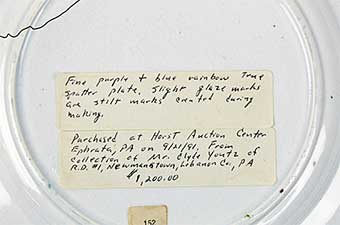 Fine purple + blue rainbow True
spatter plate. Slight glaze marks
are stilt marks created during
making.
Purchased at Horst Auction Center
Ephrata, PA on 9/21/91. From
collection of Mr. Clyde Youtz of
R.D. #1, Newmanstown, Lebanon Co., PA
$1,200.00
152